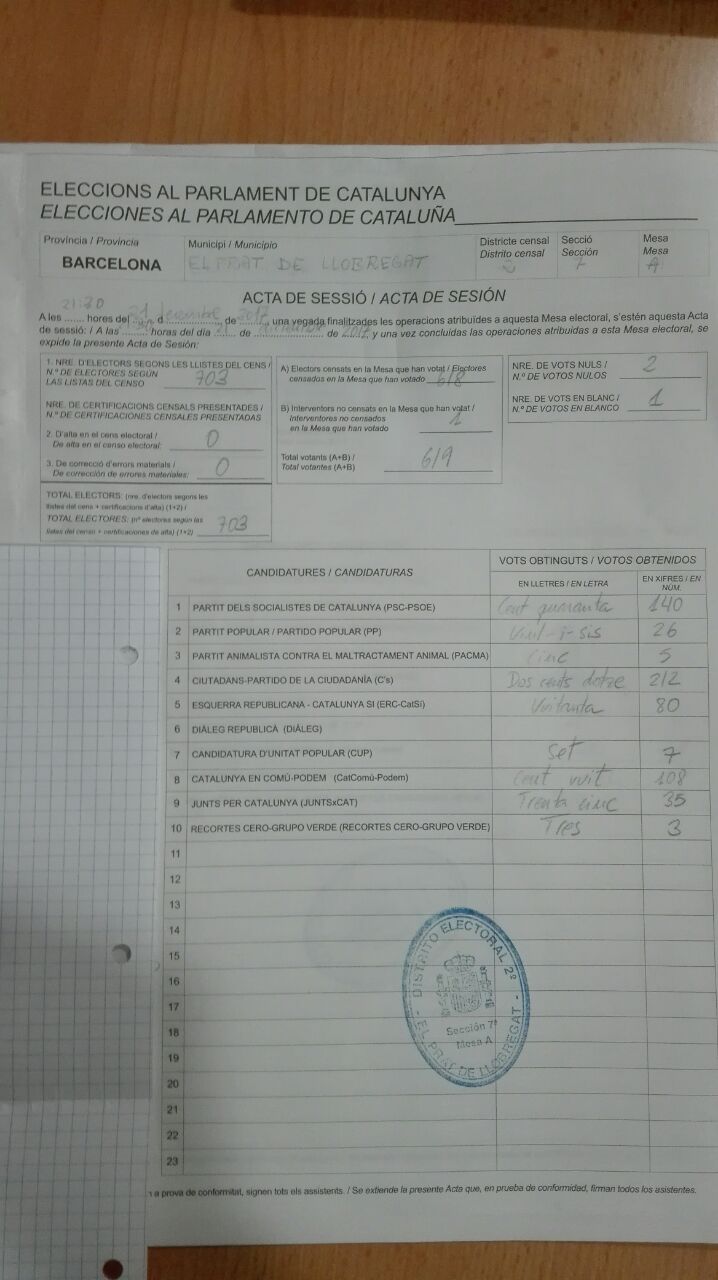 ELECCIONS AL PARLAMENT DE CATALUNYA
ELECCIONES AL PARLAMENTO DE CATALUÑA
Província / Provincia
BARCELONA
Municipi / Municipio
EL PRAT DE LLOBREGAT
Districte censal
Distrito censal
2
Secció
Sección
7
Mesa
Mesa
A
ACTA DE SESSIÓ / ACTA DE SESIÓN
21:30
A les ....... hores del 21 d desembre de 2017, una vegada finalitzades les operacions atribuïdes a aquesta Mesa electoral, s'estén aquesta Acta
de sessió: / A las ........ horas del día 21 de diciembre de 2017, y una vez concluidas las operaciones atribuidas a esta Mesa electoral, se
expide la presente Acta de Sesión:
1. NRE. D'ELECTORS SEGONS LES LLISTES DEL CENS /
N.º DE ELECTORES SEGÚN
LAS LISTAS DEL CENSO 703
NRE. DE CERTIFICACIONS CENSALS PRESENTADES /
N.º DE CERTIFICACIONES CENSALES PRESENTADAS
2. D'alta en el cens electoral /
De alta en el censo electoral: 0
3. De correcció d'errors materials /
De corrección de errores materiales: 0
TOTAL ELECTORS: (nre. d'electors segons les
llistes del cens + certificacions d'alta) (1+2) /
TOTAL ELECTORES: (nº electores según las
listas del censo + certificaciones de alta) (1+2) 703
A) Electors censats en la Mesa que han votat / Electores
censados en la Mesa que han votado 618
B) Interventors no censats en la Mesa que han votat /
Interventores no censados
en la Mesa que han votado 1
Total votants (A+B) /
Total votantes (A+B) 619
NRE. DE VOTS NULS /
N.º DE VOTOS NULOS 2
NRE. DE VOTS EN BLANC /
N.º DE VOTOS EN BLANCO 1
CANDIDATURES / CANDIDATURAS
VOTS OBTINGUTS / VOTOS OBTENIDOS
EN LLETRES / EN LETRA
EN XIFRES / EN NÚM.
1 PARTIT DELS SOCIALISTES DE CATALUNYA (PSC-PSOE) Cent quaranta 140
2 PARTIT POPULAR / PARTIDO POPULAR (PP) Vint-i-sis 26
3 PARTIT ANIMALISTA CONTRA EL MALTRACTAMENT ANIMAL (PACMA) Cinc 5
4 CIUTADANS-PARTIDO DE LA CIUDADANÍA (C's) Dos cents dotze 212
5 ESQUERRA REPUBLICANA - CATALUNYA SÍ (ERC-CatSí) Vuitanta 80
6 DIÀLEG REPUBLICÀ (DIÀLEG)
7 CANDIDATURA D'UNITAT POPULAR (CUP) Set 7
8 CATALUNYA EN COMÚ-PODEM (CatComú-Podem) Cent vuit 108
9 JUNTS PER CATALUNYA (JUNTSxCAT) Trenta cinc 35
10 RECORTES CERO-GRUPO VERDE (RECORTES CERO-GRUPO VERDE) Tres 3
11
12
13
14
15
16
17
18
19
20
21
22
23
DISTRITO ELECTORAL 2º
Sección 7ª
Mesa A
- EL PRAT DE LLOBREGAT -
a prova de conformitat, signen tots els assistents. / Se extiende la presente Acta que, en prueba de conformidad, firman todos los asistentes.